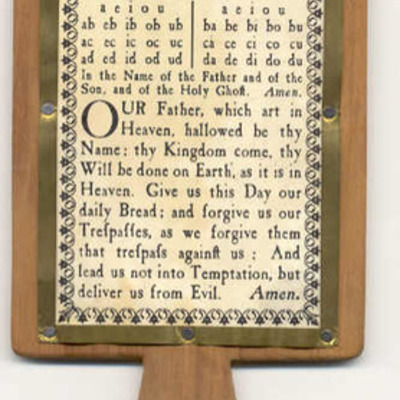 a e i o u a e i o u
ab eb ib ob ub ba be bi bo bu
ac ec ic oc uc ca ce ci co cu
ad ed id od ud da de di do du
In the Name of the Father and of the
Son, and of the Holy Ghoſt. Amen.
OUR Father, which art in
Heaven, hallowed be thy
Name; thy Kingdom come, thy
Will be done on Earth, as it is in
Heaven. Give us this Day our
daily Bread; and forgive us our
Treſpaſſes, as we forgive them
that treſpaſs againſt us: And
lead us not into Temptation, but
deliver us from Evil. Amen.